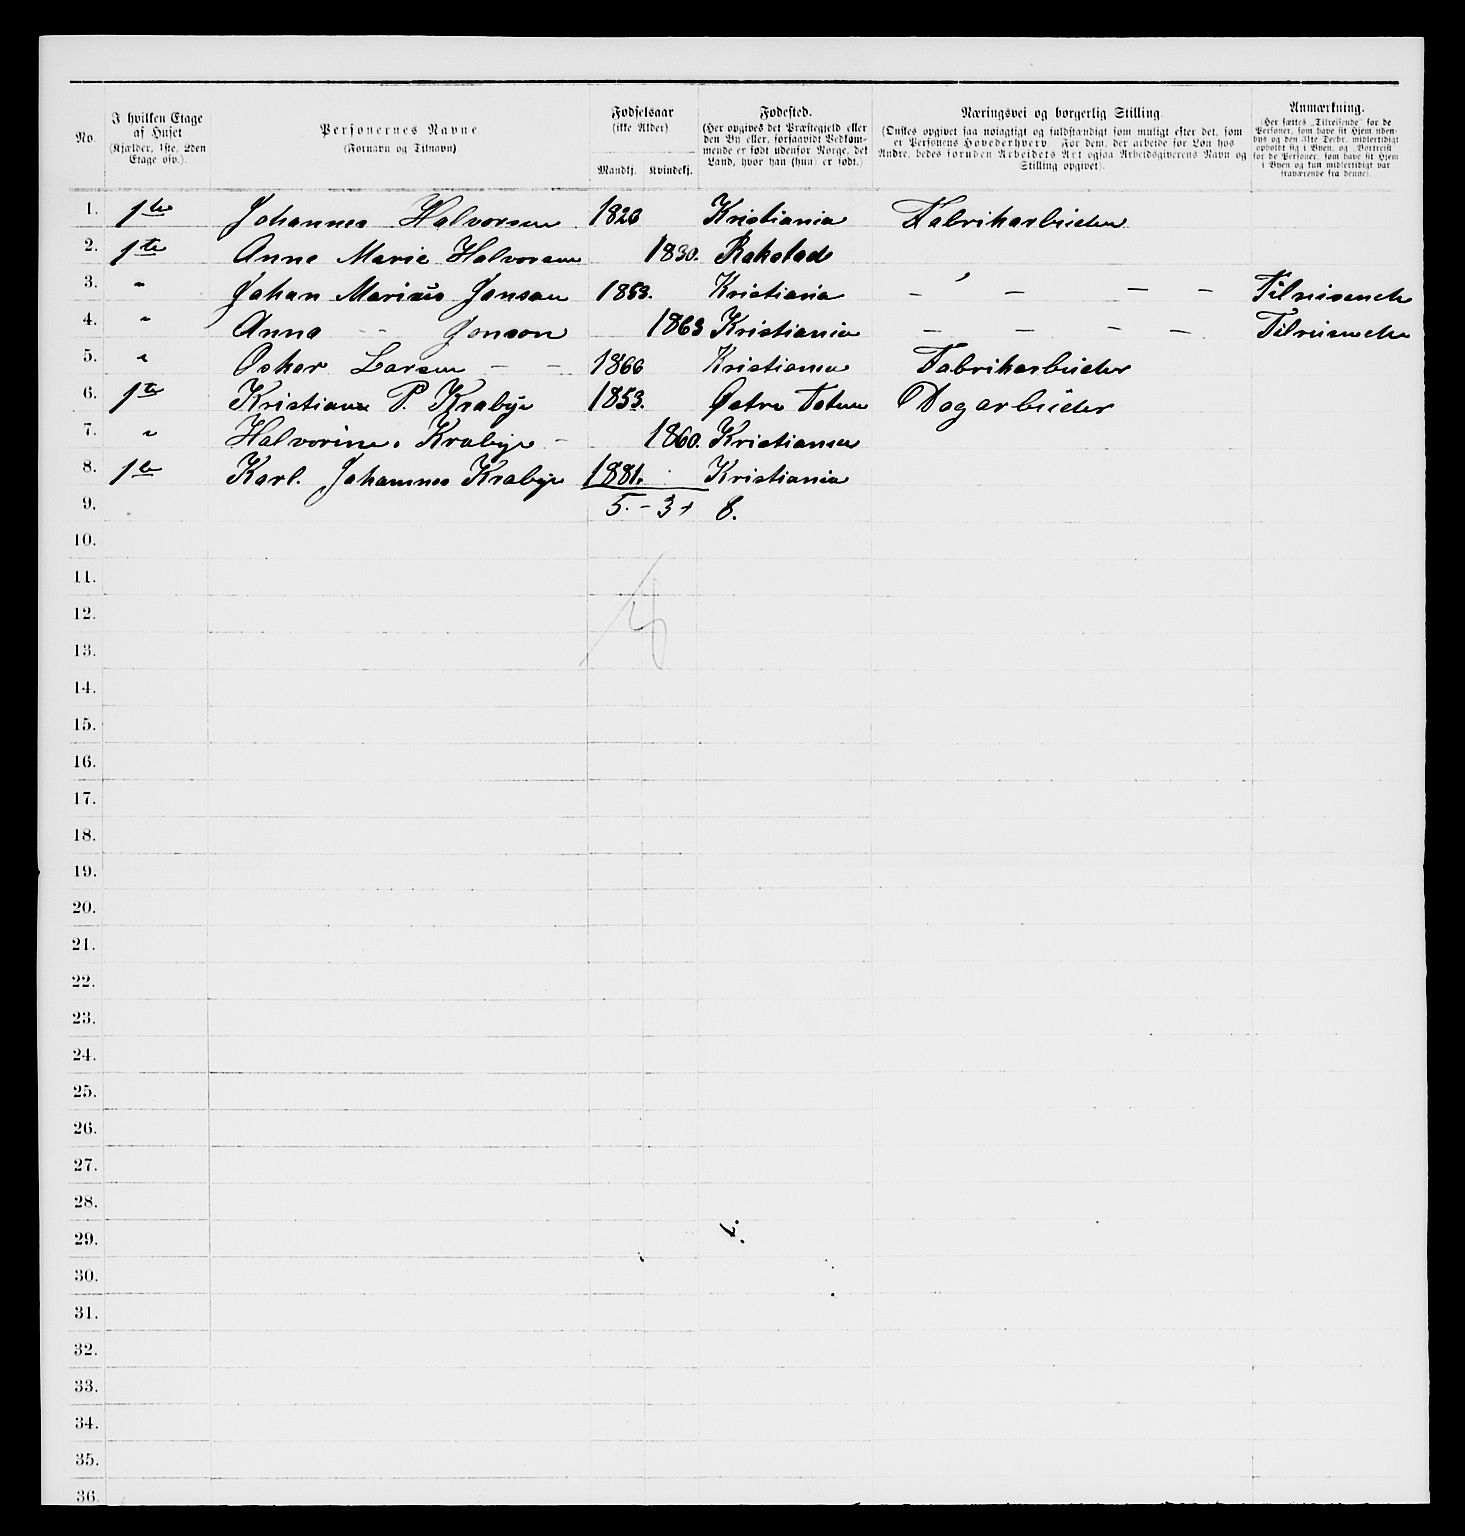 No.
I hvilken Etage af Huset (Kjælder, 1ste, 2den Etage osv.).
Personernes Navne. (Fornavn og Tilnavn)
Fødselsaar (ikke Alder) Mandkj. Kvindekj.
Fødested. (Her opgives det Præstegjeld eller den By eller, forsaavidt Vedkommende er født udenfor Norge, det Land, hvor han (hun) er født.)
Næringsvei og borgerlig Stilling. (Ønskes opgivet saa nøiagtigt og fuldstændigt som muligt efter det, som er Personens Hovederhverv. For dem, der arbeide for Løn hos Andre, bedes foruden Arbeidets Art ogsaa Arbeidsgiverens Navn og Stilling opgivet).
Anmærkning. (Her sættes „Tilreisende" for de Personer, som have sit Hjem udenbys og den 31te Decbr. midlertidigt opholdt sig i Byen, og „Bortreist" for de Personer, som have sit Hjem i Byen og kun midlertidigt var fraværende fra denne).
1. 1ste Johannes Halvorsen 1826 Kristiania Fabrikarbeider
2. 1te Anne Marie Halvorsen 1830. Rakstad
3. " Johan Marius Jonson 1853. Kristiania — — — — Tilreisende
4. " Anna — — Jonson 1863 Kristiania — — — — Tilreisende
5. " Oskar Larsen — — 1866 Kristiania Fabrikarbeider
6. 1te Kristian P. Krabye 1853. Østre Toten Dagarbeider
7. " Halvorine. Krabye — 1860. Kristiania
8. 1te Karl. Johannes Krabye 1881. Kristiania
9. 5. – 3 8.
10.
11.
12.
13.
14.
15.
16.
17.
18.
19.
20.
21.
22.
23.
24.
25.
26.
27.
28.
29.
30.
31.
32.
33.
34.
35.
36.